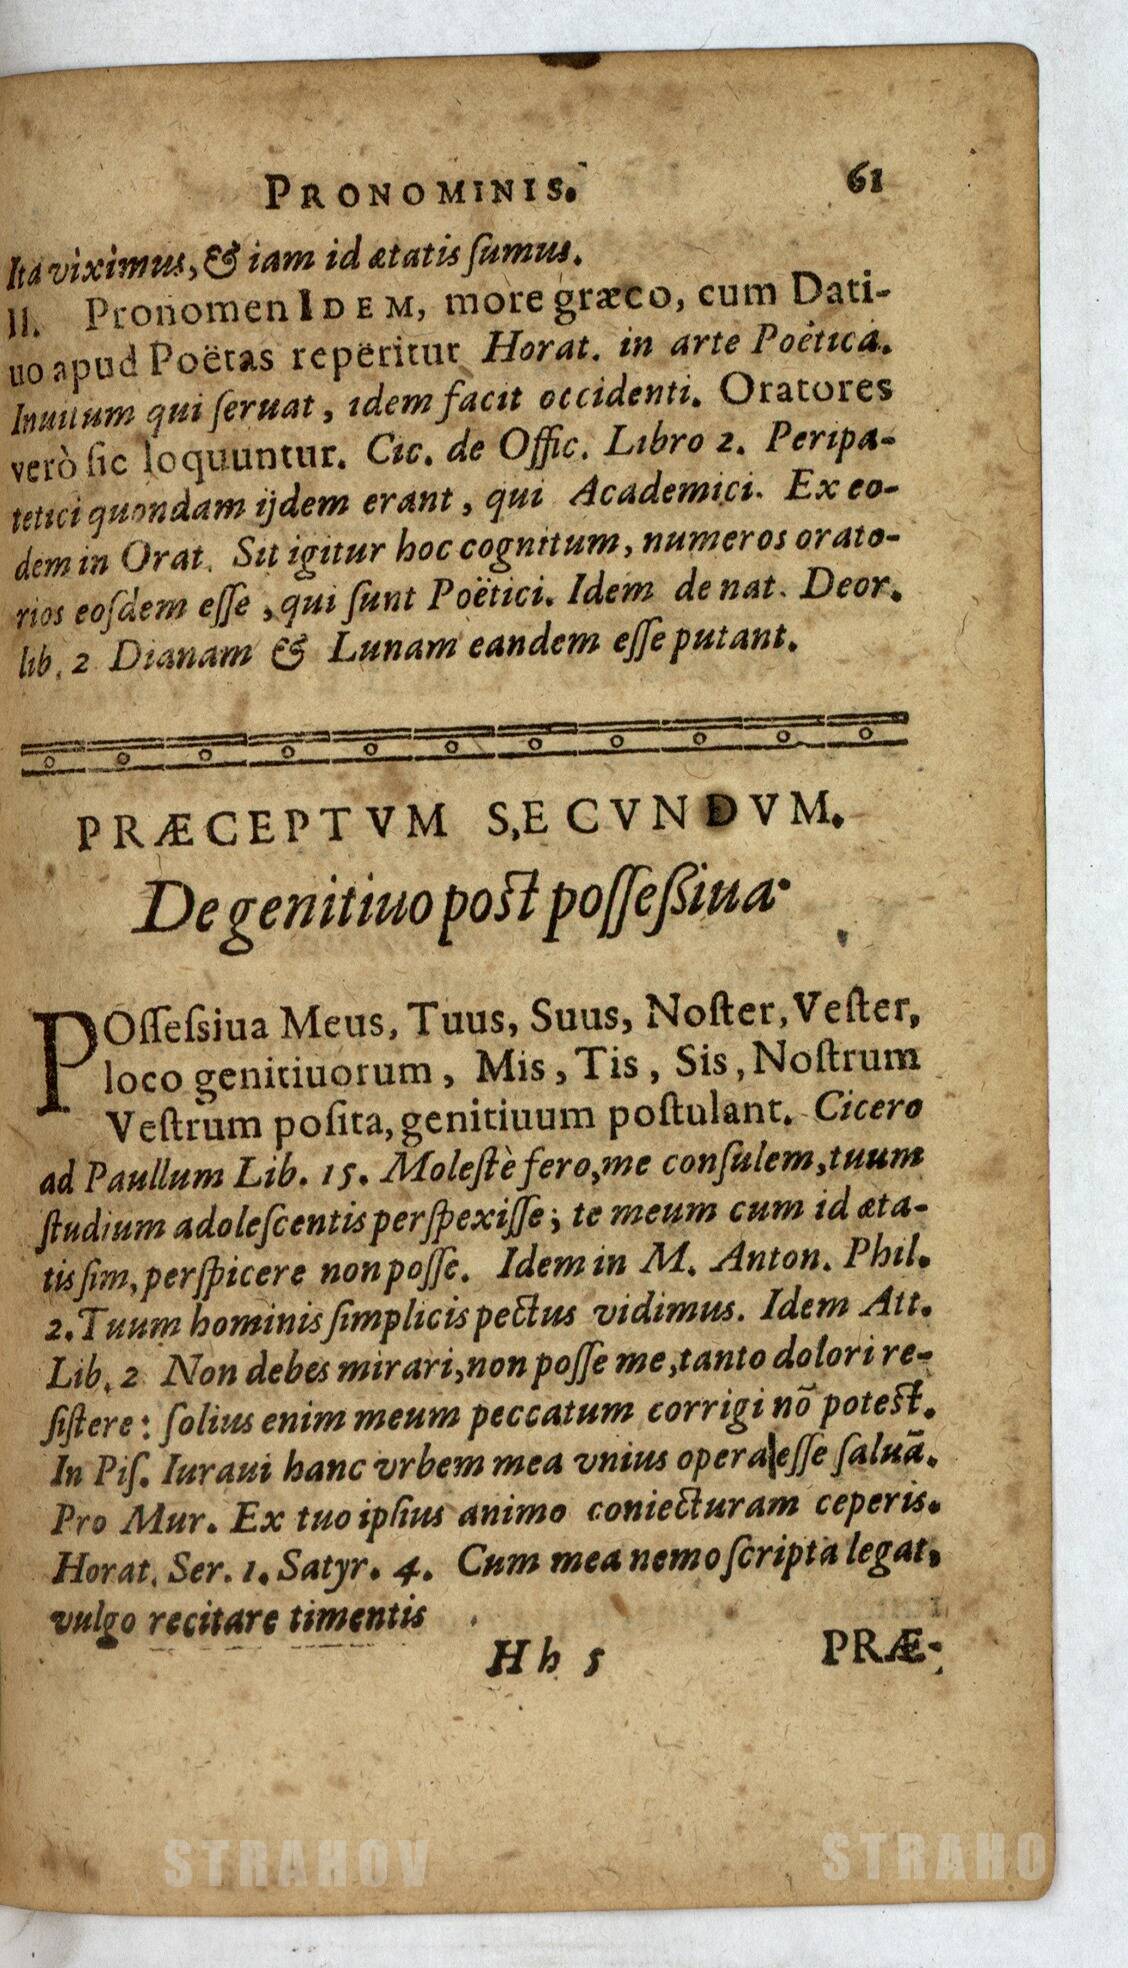 PRONOMINIS. 61
Ita viximus, & iam id ætatis ſumus.
II. Pronomen IDEM, more græco, cum Dati-
uo apud Poëtas reperitur Horat. in arte Poëtica.
Inuitum qui ſeruat, idem facit occidenti. Oratores
verò ſic loquuntur. Cic. de Offic. Libro 2. Peripa-
tetici quondam ijdem erant, qui Academici. Ex eo-
dem in Orat. Sit igitur hoc cognitum, numeros orato-
rios eoſdem eſſe, qui ſunt Poëtici. Idem de nat. Deor.
lib. 2 Dianam & Lunam eandem eſſe putant.
PRÆCEPTVM SECVNDVM.
De genitiuo post poſſeßiua.
POſſeſsiua Meus, Tuus, Suus, Noſter, Veſter,
loco genitiuorum, Mis, Tis, Sis, Noſtrum
Veſtrum poſita, genitiuum poſtulant. Cicero
ad Paullum Lib. 15. Moleſtè fero, me conſulem, tuum
ſtudium adoleſcentis perſpexiſſe; te meum cum id æta-
tis ſim, perſpicere non poſſe. Idem in M. Anton. Phil.
2. Tuum hominis ſimplicis pectus vidimus. Idem Att.
Lib. 2 Non debes mirari, non poſſe me, tanto dolori re-
ſiſtere: ſolius enim meum peccatum corrigi nõ potest.
In Piſ. Iuraui hanc vrbem mea vnius opera eſſe ſaluã.
Pro Mur. Ex tuo ipſius animo coniecturam ceperis.
Horat. Ser. 1. Satyr. 4. Cum mea nemo ſcripta legat,
vulgo recitare timentis
Hh 5 PRÆ-
STRAHOV STRAHO